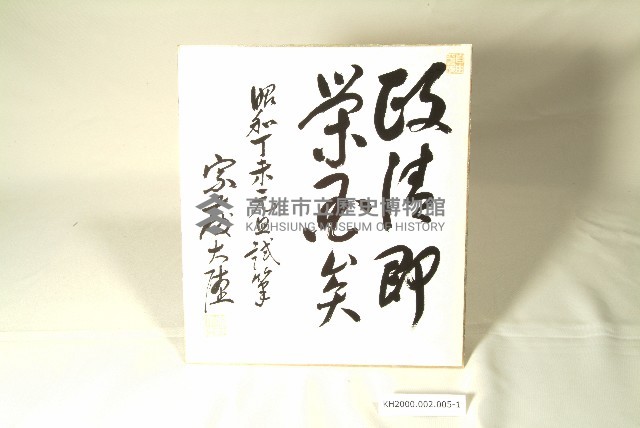 政清即
栄百矣
昭和丁未元旦試筆
宗彦大陸
高雄市立歷史博物館
KAOHSIUNG MUSEUM OF HISTORY
KH2000.002.005-1